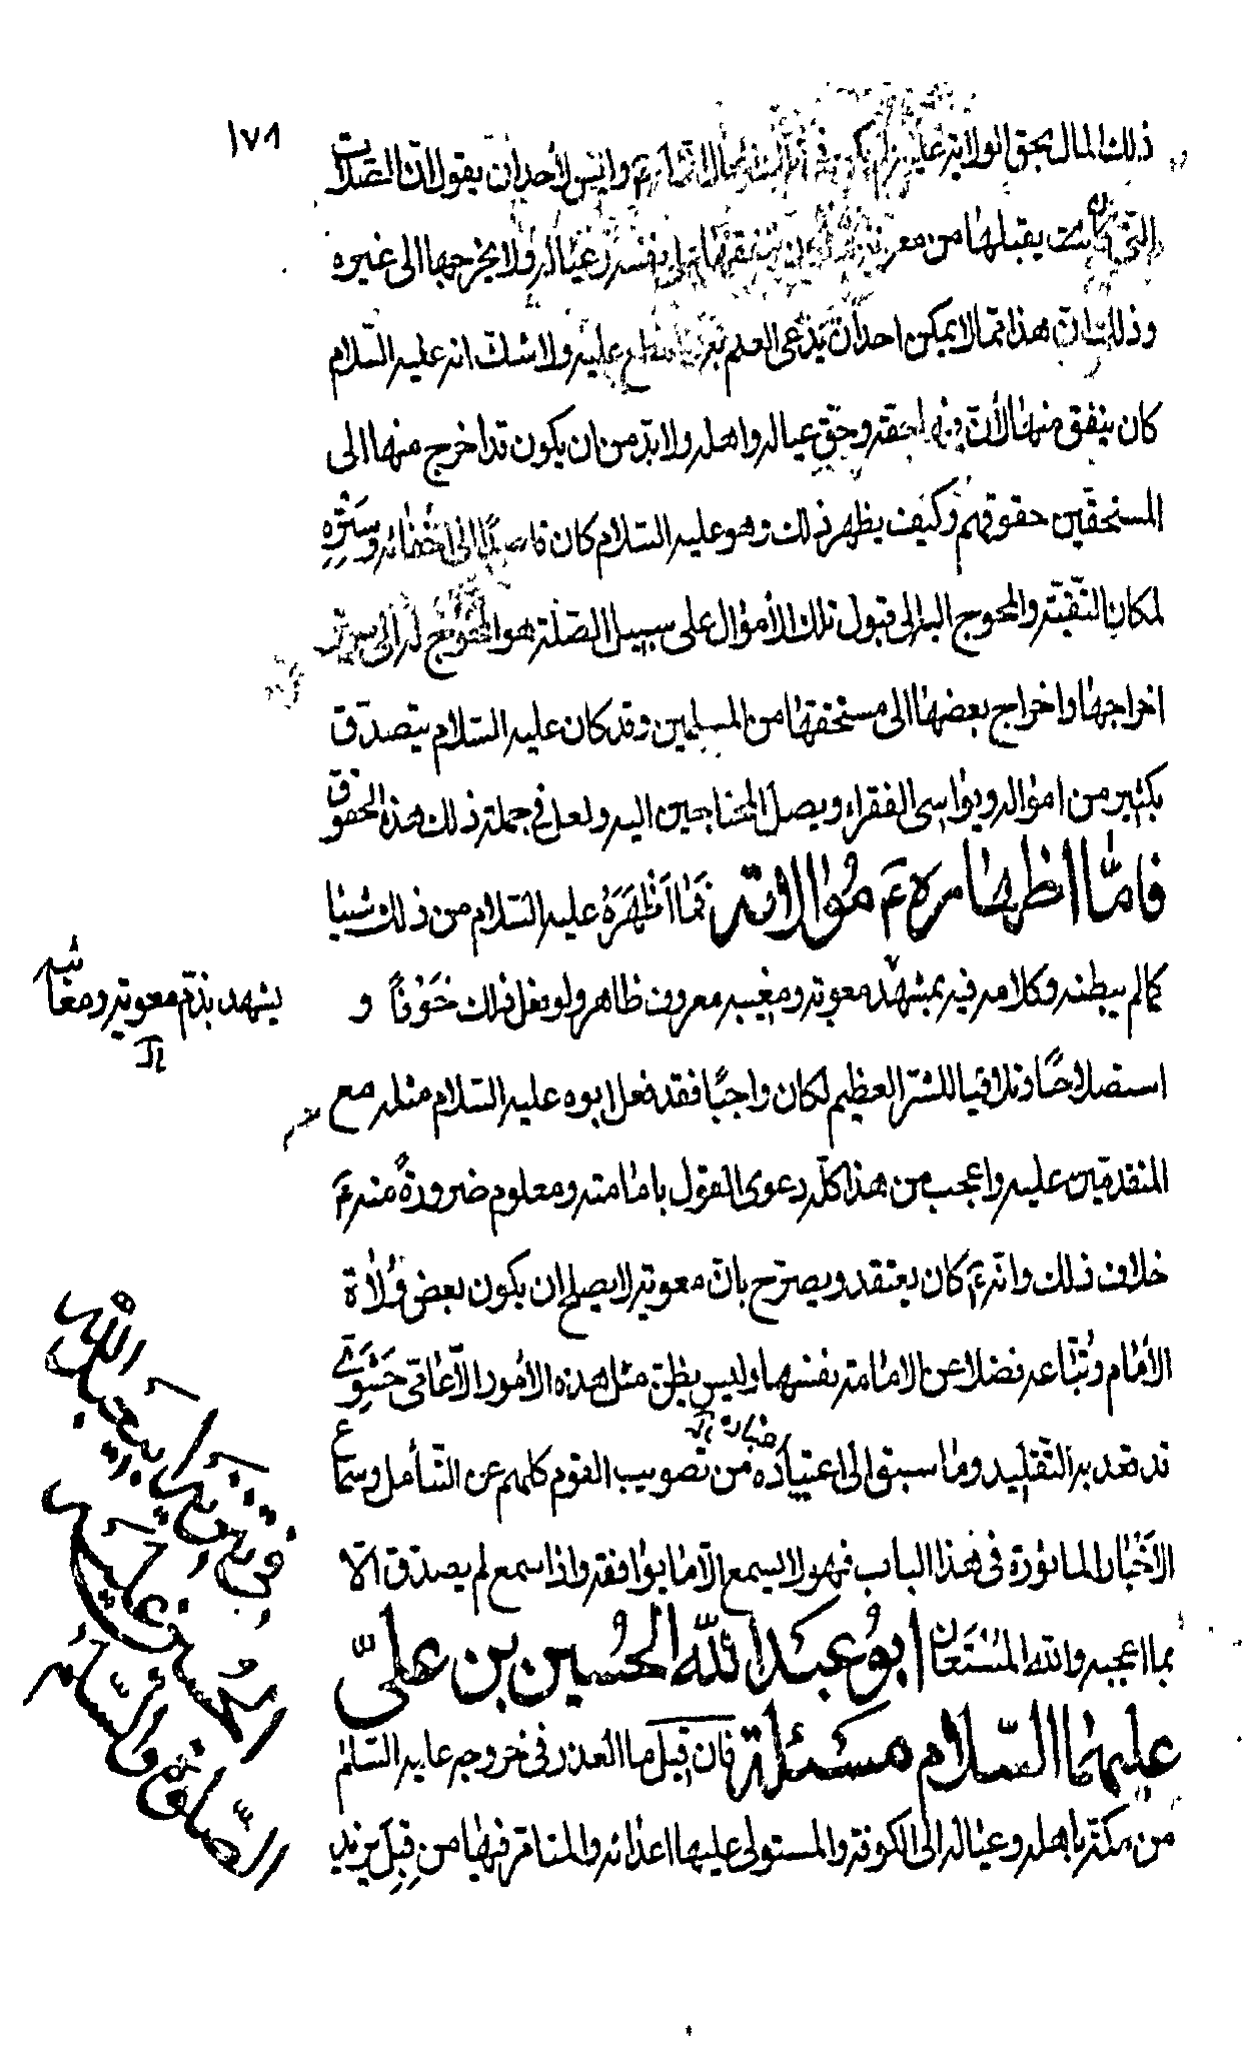 ١٧٨
ذلك المال بحق الولاية عليه وليس لأحد ان يقول ان الصلات
التي كان يقبلها من معوية ينفقها على نفسه وعياله ولا يخرجها الى غيره
وذلك ان هذا ممّا لا يمكن احدًا ان يدّعى العلم به عليه ولا شك انه عليه السّلام
كان ينفق منها لأن فيها حقه وحقّ عياله واهله ولا بدّ من ان يكون قد اخرج منها الى
المستحقّين حقوقهم وكيف يظهر ذلك وهو عليه السّلام كان قاصدًا الى اخفائه وستره
لمكان التقيّة والمحوج اليه الى قبول تلك الأموال على سبيل الصّلة هو المحوج له الى ستر
اخراجها واخراج بعضها الى مستحقها من المسلمين وقد كان عليه السّلام يتصدّق
بكثير من امواله ويواسى الفقراء ويصل المحتاجين اليه ولعل في جملة ذلك هذه الحقوق
فامّا اظهاره ع موالاته فما اَظْهَرَهُ عليه السّلام من ذلك شيئا
كما لم يبطنه وكلامه فيه بمشهد معوية ومغيبه معروف ظاهر ولو فعل ذلك خَوْفاً و
يشهد بذم معوية ومعائبه
استصلاحًا وتلافيا للشرّ العظيم لكان واجبًا فقد فعل ابوه عليه السّلام مثله مع
المتقدمّين عليه واعجب من هذا كلّه دعوى القول بامامته ومعلوم ضرورةً منه ع
خلاف ذلك وانّه ع كان يعتقد ويصرّح بانّ معوية لا يصلح ان يكون بعض وُلاة
الأمام وتُبّاعه فضلا عن الامامة نفسها وليس يظن مثل هذه الأمور الّا عامّى حَشْوىّ
قد قعد به التّقليد وما سبق الى اعتياده من تصويب القوم كلهم عن التّأمل وسماع
الأخبار المأثورة فى هذا الباب فهو لا يسمع الّا ما يوافقه واذا سمع لم يصدّق الّا
بما اعجبه والله المُسْتَعَان ابو عبد الله الحُسين بن علىّ
عليهما السّلام مسئلة فان قيل ما العذر فى خروجه عليه السّلم
من مكّة باهله وعياله الى الكوفة والمستولى عليها اعدائه والمتامر فيها من قِبَل يزيد
فى تنزيه ابى عبد الله
الحسين عليه
الصّلوة والسّلام